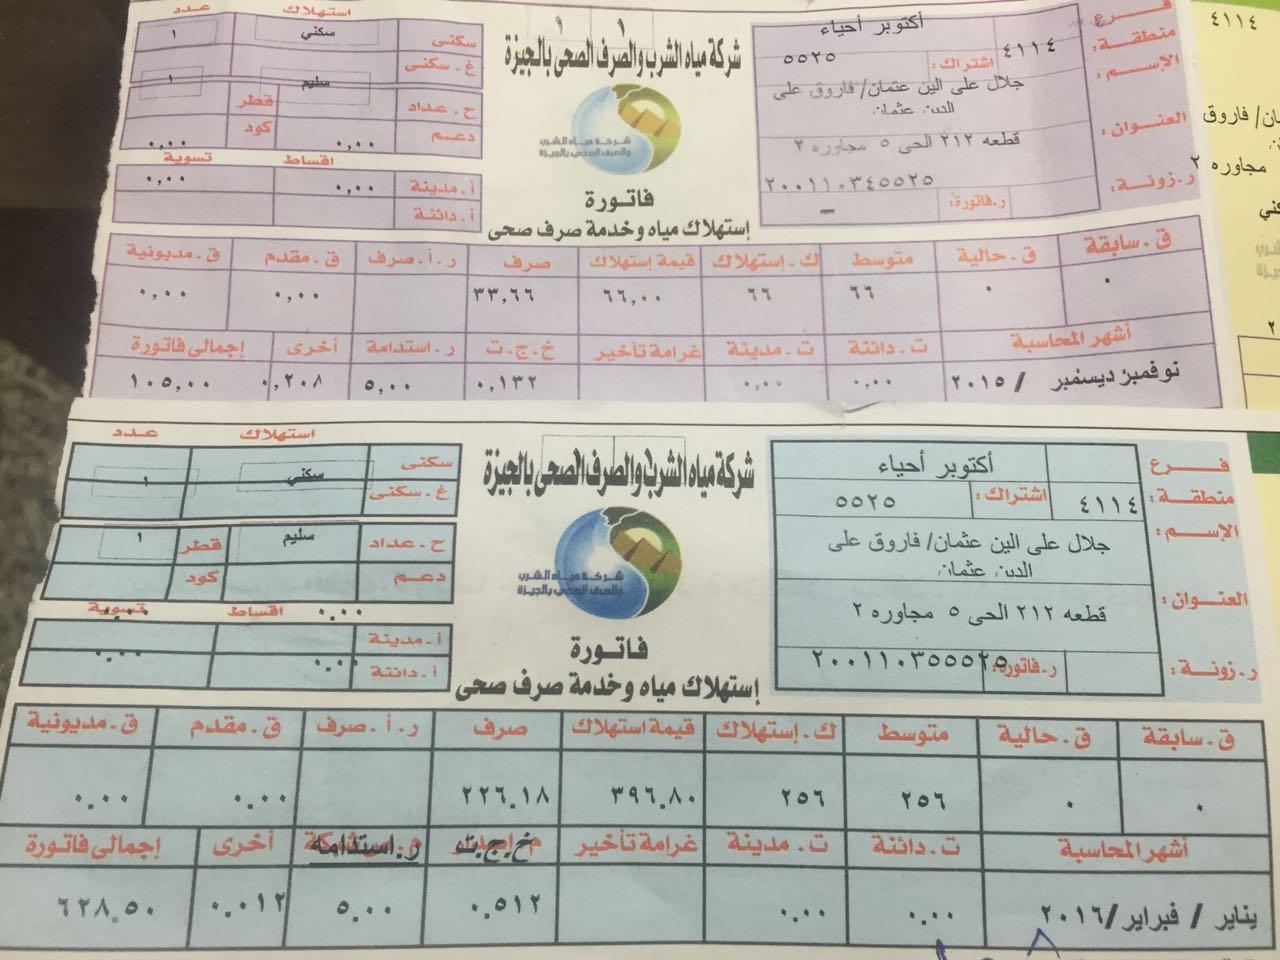 استهلاك عدد
سكنى سكني ١
غ.سكنى
ح.عداد سليم قطر ١
دعم ٠,٠٠ كود ٠,٠٠
اقساط تسوية
أ.مدينة ٠,٠٠ ٠,٠٠
أ.دائنة
شركة مياه الشرب والصرف الصحى بالجيزة
شركة مياه الشرب
والصرف الصحى بالجيزة
فاتورة
إستهلاك مياه وخدمة صرف صحى
فرع أكتوبر أحياء
منطقة: ٤١١٤ اشتراك: ٥٥٢٥
الإسم: جلال على الين عثمان/ فاروق على
الدين عثمان
العنوان: قطعه ٢١٢ الحى ٥ مجاوره ٢
ر.زونة: ٢٠٠١١٠٣٤٥٥٢٥
ر.فاتورة:
ق.سابقة ق.حالية متوسط ك.إستهلاك قيمة إستهلاك صرف ر.أ.صرف ق.مقدم ق.مديونية
٠ ٠ ٦٦ ٦٦ ٦٦,٠٠ ٣٣,٦٦ ٠,٠٠ ٠,٠٠
أشهر المحاسبة ت.دائنة ت.مدينة غرامة تأخير خ.ج.ت ر.استدامة أخرى إجمالى فاتورة
نوفمبر ديسنمبر / ٢٠١٥ ٠,٠٠ ٠,٠٠ ٠,١٣٢ ٥,٠٠ ٠,٢٠٨ ١٠٥,٠٠
استهلاك عدد
سكنى سكني ١
غ.سكنى
ح.عداد سليم قطر ١
دعم كود
٠.٠٠ اقساط ٠.٠٠ تسوية
أ.مدينة
أ.دائنة ٠.٠٠ ٠.٠٠
شركة مياه الشرب والصرف الصحى بالجيزة
شركة مياه الشرب
والصرف الصحى بالجيزة
فاتورة
إستهلاك مياه وخدمة صرف صحى
فرع أكتوبر أحياء
منطقة: ٤١١٤ اشتراك: ٥٥٢٥
الإسم: جلال على الين عثمان/ فاروق على
الدين عثمان
العنوان: قطعه ٢١٢ الحى ٥ مجاوره ٢
ر.زونة: ر.فاتورة: ٢٠٠١١٠٣٥٥٥٢٥
ق.سابقة ق.حالية متوسط ك.إستهلاك قيمة استهلاك صرف ر.أ.صرف ق.مقدم ق.مديونية
٠ ٠ ٢٥٦ ٢٥٦ ٣٩٦.٨٠ ٢٢٦.١٨ ٠.٠٠ ٠.٠٠
أشهر المحاسبة ت.دائنة ت.مدينة غرامة تأخير خ.ج.ت ر.استدامه أخرى إجمالى فاتورة
يناير / فبراير/٢٠١٦ ٠.٠٠ ٠.٠٠ ٠.٥١٢ ٥.٠٠ ٠.٠١٢ ٦٢٨.٥٠
٤١١٤
ثمان/ فاروق
مجاوره ٢